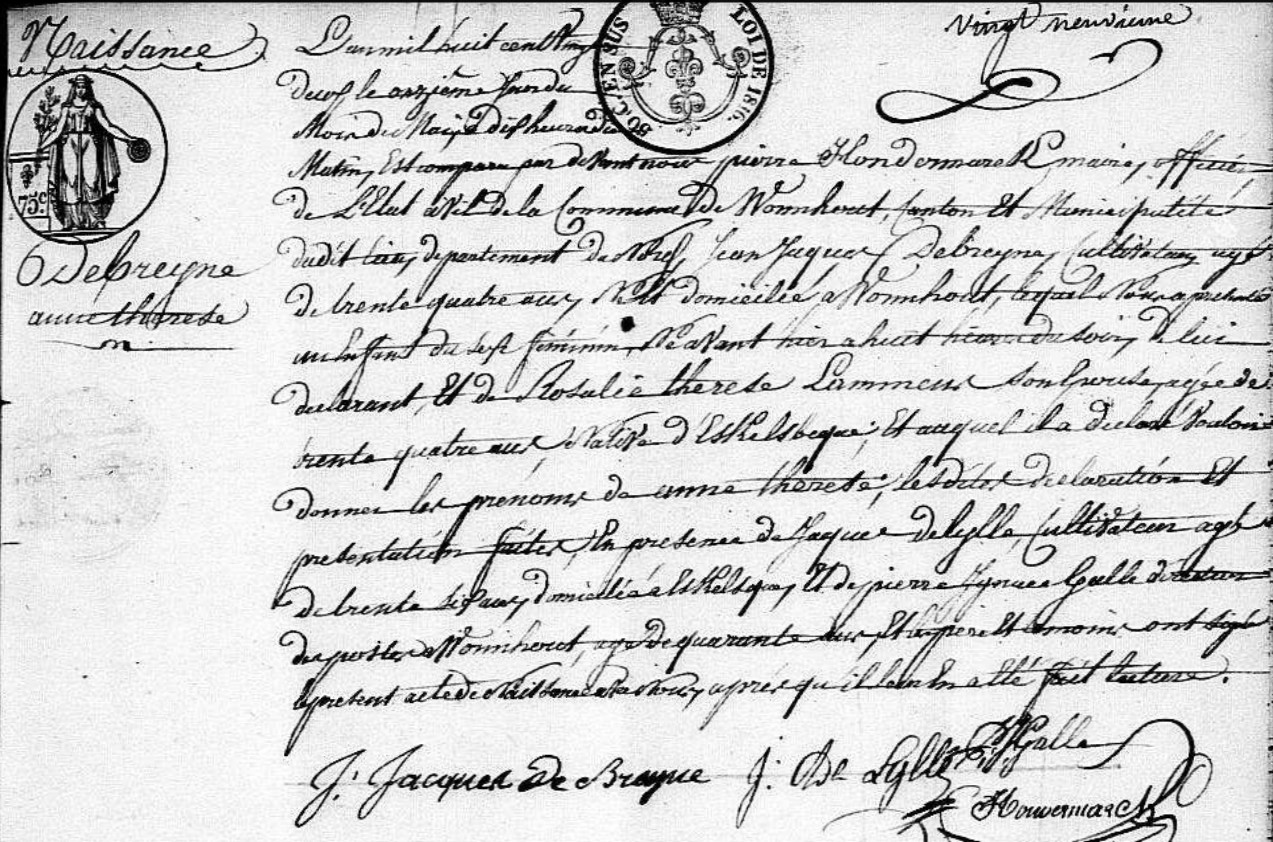 Naissance
Vingt neuvieme
50 C. EN SUS
LOI DE 1816.
75 C.
Debreyne
anne therese
L'an mil huit cent vingt
deux le onzième Jour du
Mois de Mai, à dix heures du
Matin, Est comparu par devant nous pierre Hondermarck, maire, officier
de L'Etat civil de la Commune de Wormhout, Canton Et Municipalité
dudit lieu, departement du Nord, Jean Jaques Debreyne, Cultivateur, agé
de trente quatre ans, domicilié a Wormhout, lequel Nous a presenté
un Enfant du sexe féminin, Né avant hier a huit heures du soir, de lui
declarant, Et de Rosalie therese Lammens son Epouse, agée de
trente quatre ans, Native d'Eskelsbeque; Et auquel il a declaré Vouloir
donner les prénoms de anne therese; lesdites declaration Et
presentation faites En presence de Jaques delylle, Cultivateur agé
de trente six ans, domicilié a Eskelsque, Et de pierre Ignace Galle directeur
des postes a Wormhout, agé de quarante ans, Et les père Et temoins ont signé
le present acte de Naissance avec Nous, après qu'il leur En a été fait lecture.
J. Jacques De Breyne
J. De Lylle
PI Galle